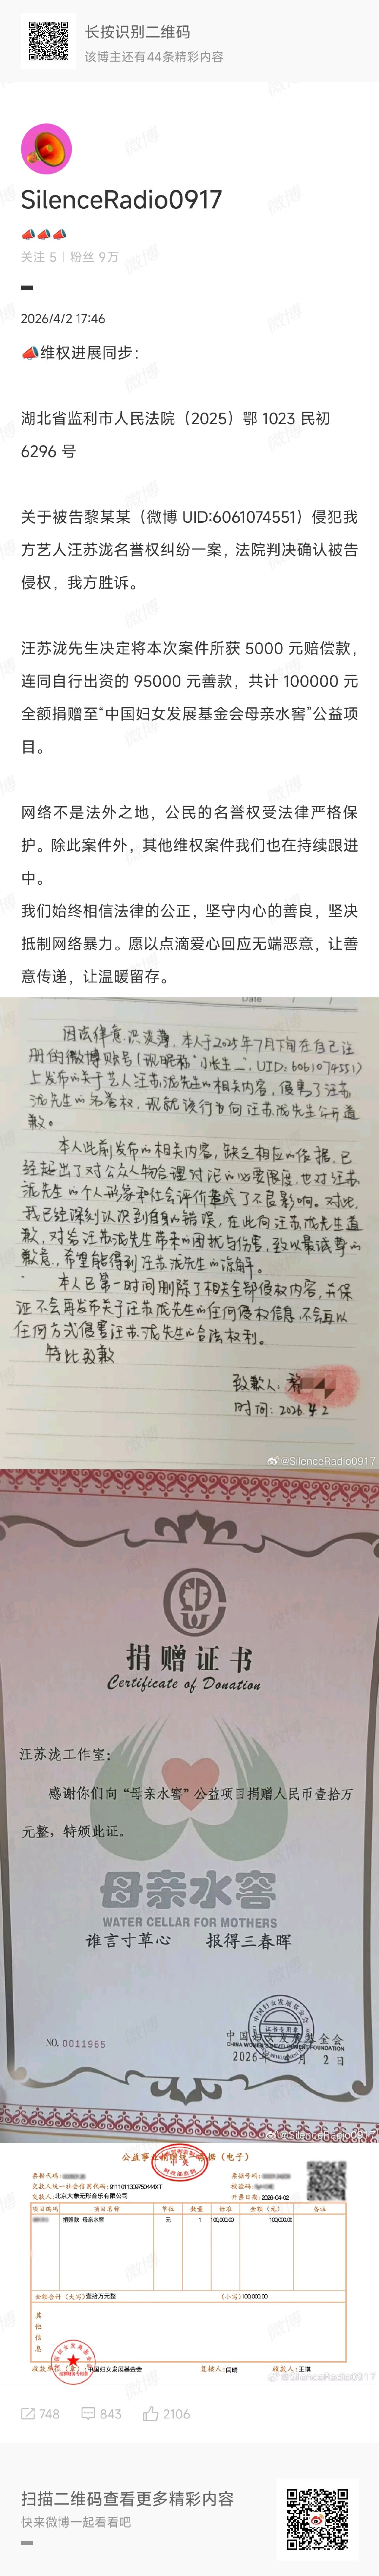 长按识别二维码
该博主还有44条精彩内容
SilenceRadio0917
📣📣📣
关注 5 | 粉丝 9万
2026/4/2 17:46
📣维权进展同步：
湖北省监利市人民法院（2025）鄂 1023 民初
6296 号
关于被告黎某某（微博 UID:6061074551）侵犯我
方艺人汪苏泷名誉权纠纷一案，法院判决确认被告
侵权，我方胜诉。
汪苏泷先生决定将本次案件所获 5000 元赔偿款，
连同自行出资的 95000 元善款，共计 100000 元
全额捐赠至“中国妇女发展基金会母亲水窖”公益项
目。
网络不是法外之地，公民的名誉权受法律严格保
护。除此案件外，其他维权案件我们也在持续跟进
中。
我们始终相信法律的公正，坚守内心的善良，坚决
抵制网络暴力。愿以点滴爱心回应无端恶意，让善
意传递，让温暖留存。
Date / /
因法律意识淡薄，本人于2025年7月下旬在自己注
册的微博账号（现昵称“小张生二”，UID：6061074551）
上发布的关于艺人汪苏泷先生的相关内容，侵害了汪苏
泷先生的名誉权，现就该行为向汪苏泷先生公开道
歉。
本人此前发布的相关内容，缺乏相应的依据，已
经超出了对公众人物合理讨论的必要限度，也对汪苏
泷先生的个人形象和社会评价造成了不良影响。对此，
我已经深刻认识到自身的错误，在此向汪苏泷先生道
歉，对给汪苏泷先生带来的困扰与伤害，致以最诚挚的
歉意，希望能得到汪苏泷先生的谅解。
本人已第一时间删除了相关全部侵权内容，并保
证不会再发布关于汪苏泷先生的任何侵权信息，不会再以
任何方式侵害汪苏泷先生的合法权利。
特此致歉
致歉人：黎
时间：2026.4.2
@SilenceRadio0917
捐赠证书
Certificate of Donation
汪苏泷工作室：
感谢你们向“母亲水窖”公益项目捐赠人民币壹拾万
元整，特颁此证。
母亲水窖
WATER CELLAR FOR MOTHERS
谁言寸草心 报得三春晖
中国妇女发展基金会
CHINA WOMEN'S DEVELOPMENT FOUNDATION
NO. 0011965
2026年 月 2 日
@SilenceRadio0917
公益事业捐赠统一票据（电子）
票据代码：
票据号码：
交款人统一社会信用代码：
校验码：
交款人：北京大象无形音乐有限公司
开票日期：2026-04-02
项目编码 项目名称 单位 数量 标准 金额（元） 备注
捐赠款 母亲水窖 元 1 100,000.00 100,000.00
金额合计（大写）壹拾万元整 （小写）100,000.00
其他信息
收款单位（章）：中国妇女发展基金会 复核人：闫晴 收款人：王琪
@SilenceRadio0917
748 843 2106
扫描二维码查看更多精彩内容
快来微博一起看看吧